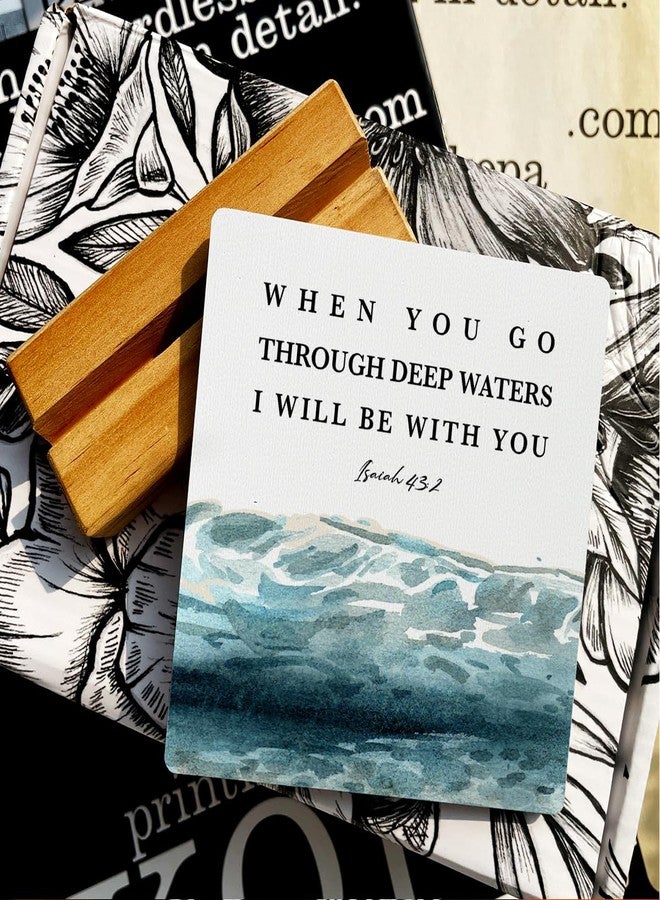 in detail.
detail.
.com
om
WHEN YOU GO
THROUGH DEEP WATERS
I WILL BE WITH YOU
Isaiah 43:2